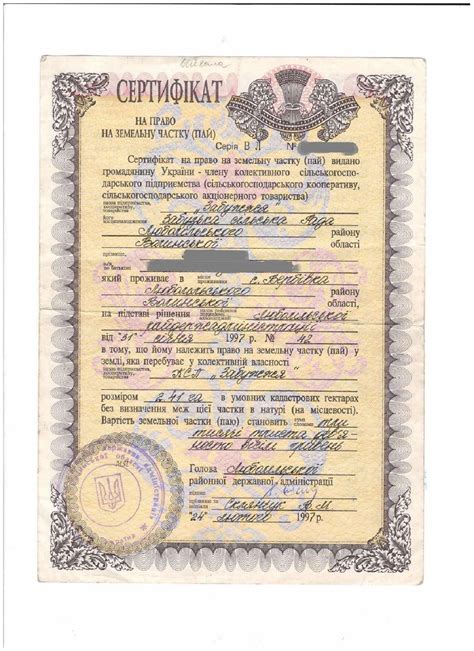 СЕРТИФІКАТ
НА ПРАВО
НА ЗЕМЕЛЬНУ ЧАСТКУ (ПАЙ)
Серія ВЛ №
Сертифікат на право на земельну частку (пай) видано
громадянину України - члену колективного сільськогоспо-
дарського підприємства (сільськогосподарського кооперативу,
сільськогосподарського акціонерного товариства)
"Забужжя"
Забузька сільська Рада
Любомльського району
Волинської області
прізвище,
по батькові
який проживає в с. Вербівка
Любомльського району
Волинської області,
на підставі рішення Любомльської
райдержадміністрації
від "31" січня 1997 р. № 42
в тому, що йому належить право на земельну частку (пай) у
землі, яка перебуває у колективній власності
КСП "Забужжя"
розміром 2.41 га в умовних кадастрових гектарах
без визначення меж цієї частки в натурі (на місцевості).
Вартість земельної частки (паю) становить три
тисячі триста дев'я-
носто вісім гривень
Голова Любомльської
районної державної адміністрації
"24" лютого 1997р.